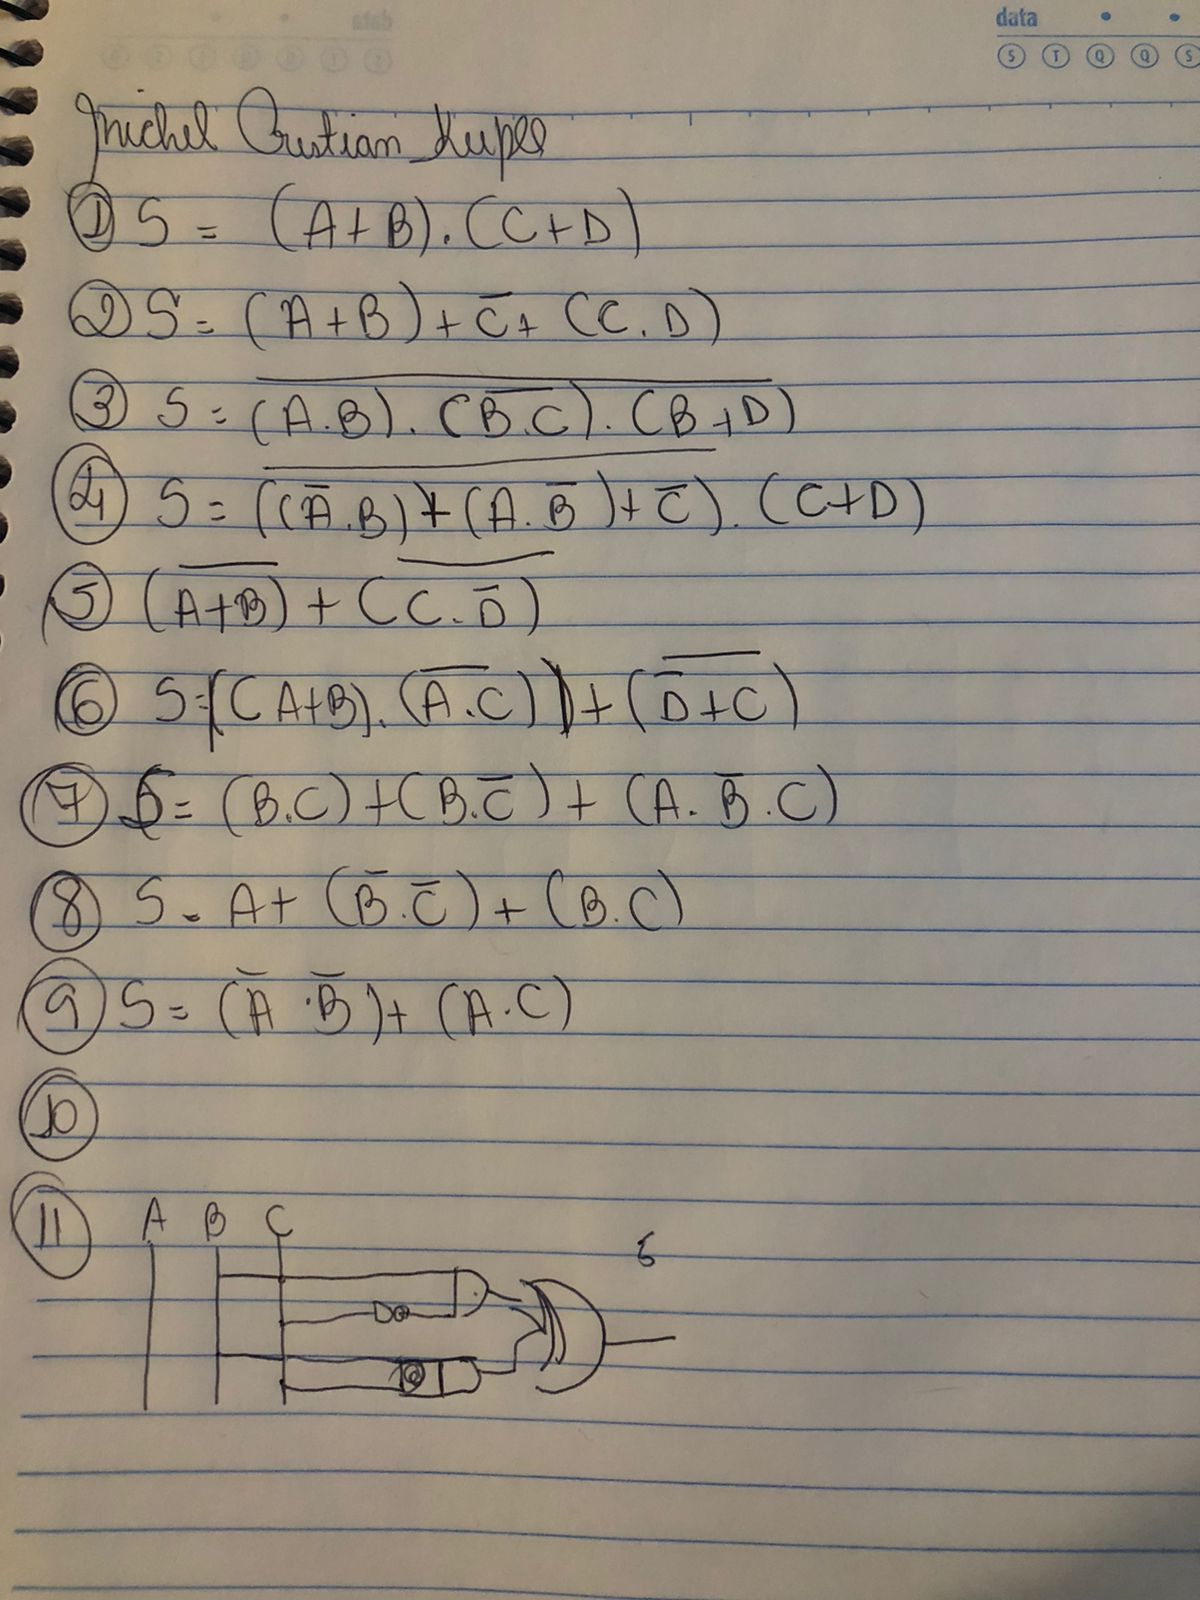 data
S T Q Q S
Michel Cristian Kuper
① S = (A+B).(C+D)
② S = (A+B)+C̅+(C.D)
③ S = \overline{(A.B).(\overline{B.C}).(B+D)}
④ S = \overline{((A̅.B)+(A.B̅)+C̅)}.(C+D)
⑤ (\overline{A+B})+(\overline{C.D̅})
⑥ S=((A+B).(\overline{A.C}))+(\overline{D̅+C})
⑦ S= (B.C)+(B.C̅)+(A.B̅.C)
⑧ S = A+(B̅.C̅)+(B.C)
⑨ S = (A̅.B̅)+(A.C)
⑩
⑪ A B C
S